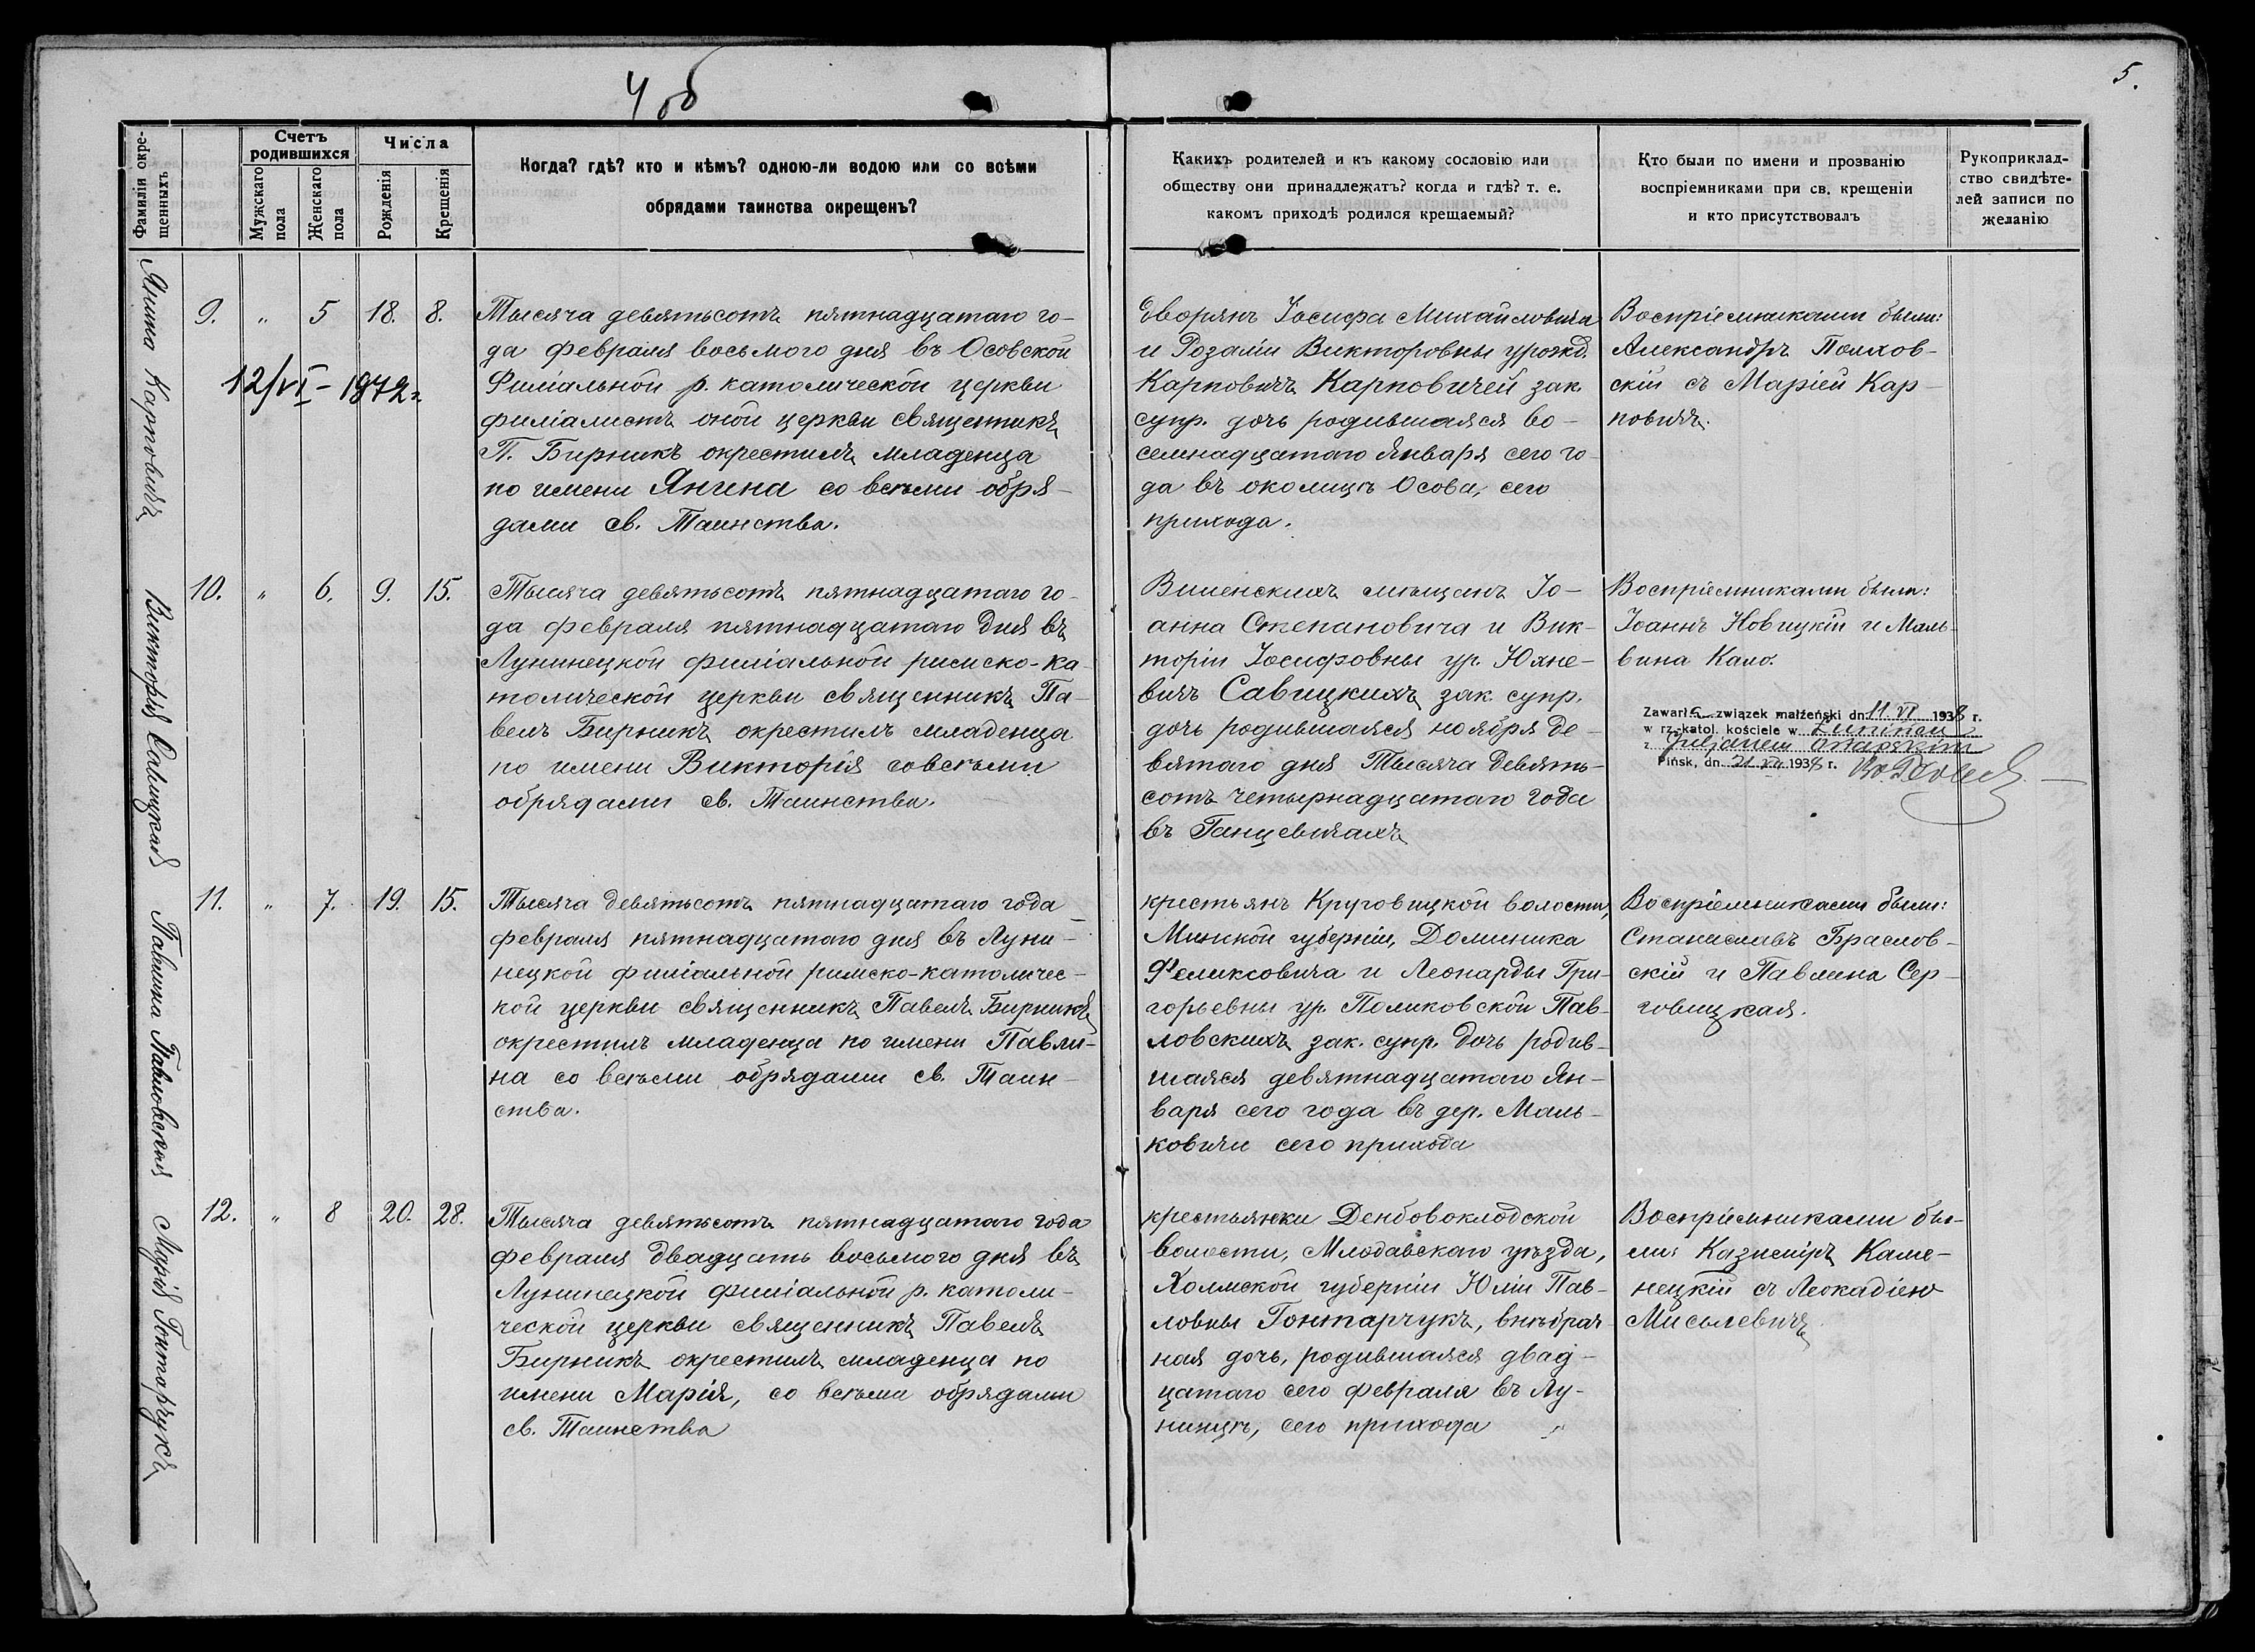 4 об
5.
Фамиліи окре-
щенныхъ
Счетъ
родившихся
Мужскаго
пола
Женскаго
пола
Числа
Рожденія
Крещенія
Когда? гдѣ? кто и кѣмъ? одною-ли водою или со всѣми
обрядами таинства окрещенъ?
Какихъ родителей и къ какому сословію или
обществу они принадлежатъ? когда и гдѣ? т. е.
какомъ приходѣ родился крещаемый?
Кто были по имени и прозванію
воспріемниками при св. крещеніи
и кто присутствовалъ
Рукоприклад-
ство свидѣте-
лей записи по
желанію
Янина Карповичъ
9. " 5 18. 8.
12/VI - 1972г
Тысяча девятьсотъ пятнадцатаго го-
да февраля восьмого дня въ Осовской
Филіальной р. католической церкви
филіалистъ оной церкви священникъ
П. Бирникъ окрестилъ младенца
по имени Янина со всѣми обря-
дами св. Таинства.
Дворянъ Іосифа Михайловича
и Розаліи Викторовны урожд.
Карповичъ Карповичей зак.
супр. дочь родившаяся во-
семнадцатаго Января сего го-
да въ околицѣ Осова, сего
прихода.
Воспріемниками были:
Александръ Полхов-
скій съ Маріей Кар-
повичъ.
Викторія Савицкая
10. " 6. 9. 15.
Тысяча девятьсотъ пятнадцатаго го-
да февраля пятнадцатаго дня въ
Лунинецкой филіальной римско-ка-
толической церкви священникъ Па-
велъ Бирникъ окрестилъ младенца
по имени Викторія совсѣми
обрядами св. Таинства.
Виленскихъ мѣщанъ Іо-
анна Степановича и Вик-
торіи Іосифовны ур. Юхне-
вичъ Савицкихъ зак. супр.
дочь родившаяся ноября де-
вятаго дня Тысяча девять-
сотъ четырнадцатаго года
въ Ганцевичахъ
Воспріемниками были:
Іоаннъ Новицкій и Маль-
вина Кало.
Zawarła związek małżeński dn. 11. VI 1938 r.
w rz.-katol. kościele w Łunińcu
z Juljanem
Pińsk, dn. 21 VII 1938 r.
Павлина Павловская
11. " 7. 19. 15.
Тысяча девятьсотъ пятнадцатаго года
февраля пятнадцатаго дня въ Луни-
нецкой филіальной римско-католичес-
кой церкви священникъ Павелъ Бирникъ
окрестилъ младенца по имени Павли-
на со всѣми обрядами св. Таин-
ства.
крестьянъ Круговицкой волости,
Минской губерніи, Доминика
Феликсовича и Леонарды Гри-
горьевны ур. Поликовской Пав-
ловскихъ зак. супр. дочь родив-
шаяся девятнадцатаго Ян-
варя сего года въ дер. Маль-
ковичи сего прихода
Воспріемниками были:
Станиславъ Браслов-
скій и Павлина Сер-
говицкая.
Марія Гонтарчукъ
12. " 8 20. 28.
Тысяча девятьсотъ пятнадцатаго года
февраля двадцать восьмого дня въ
Лунинецкой филіальной р. католи-
ческой церкви священникъ Павелъ
Бирникъ окрестилъ младенца по
имени Марія, со всѣми обрядами
св. Таинства
крестьянки Денбовоклодской
волости, Млодавскаго уѣзда,
Холмской губерніи Юліи Пав-
ловны Гонтарчукъ, внѣбрач-
ная дочь, родившаяся двад-
цатаго сего февраля въ Лу-
нинцѣ, сего прихода
Воспріемниками бы-
ли: Казиміръ Каме-
нецкій съ Леокадіею
Мисьлевичъ